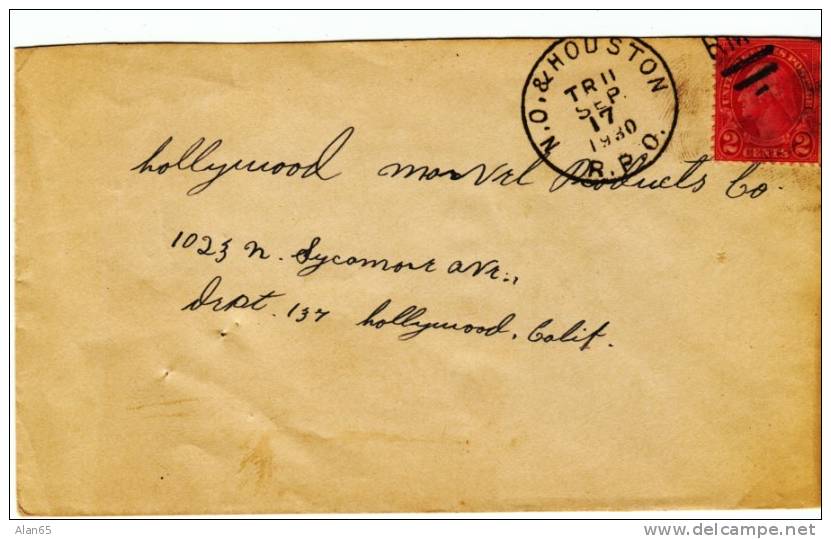 N.O. & HOUSTON
TR 11
SEP.
17
1930
R.P.O.
RM
UNITED STATES POSTAGE
2 CENTS 2
Hollywood Marvel Products Co.
1023 N. Sycamore Ave.,
Dept. 137 Hollywood, Calif.
Alan65
delcampe.net